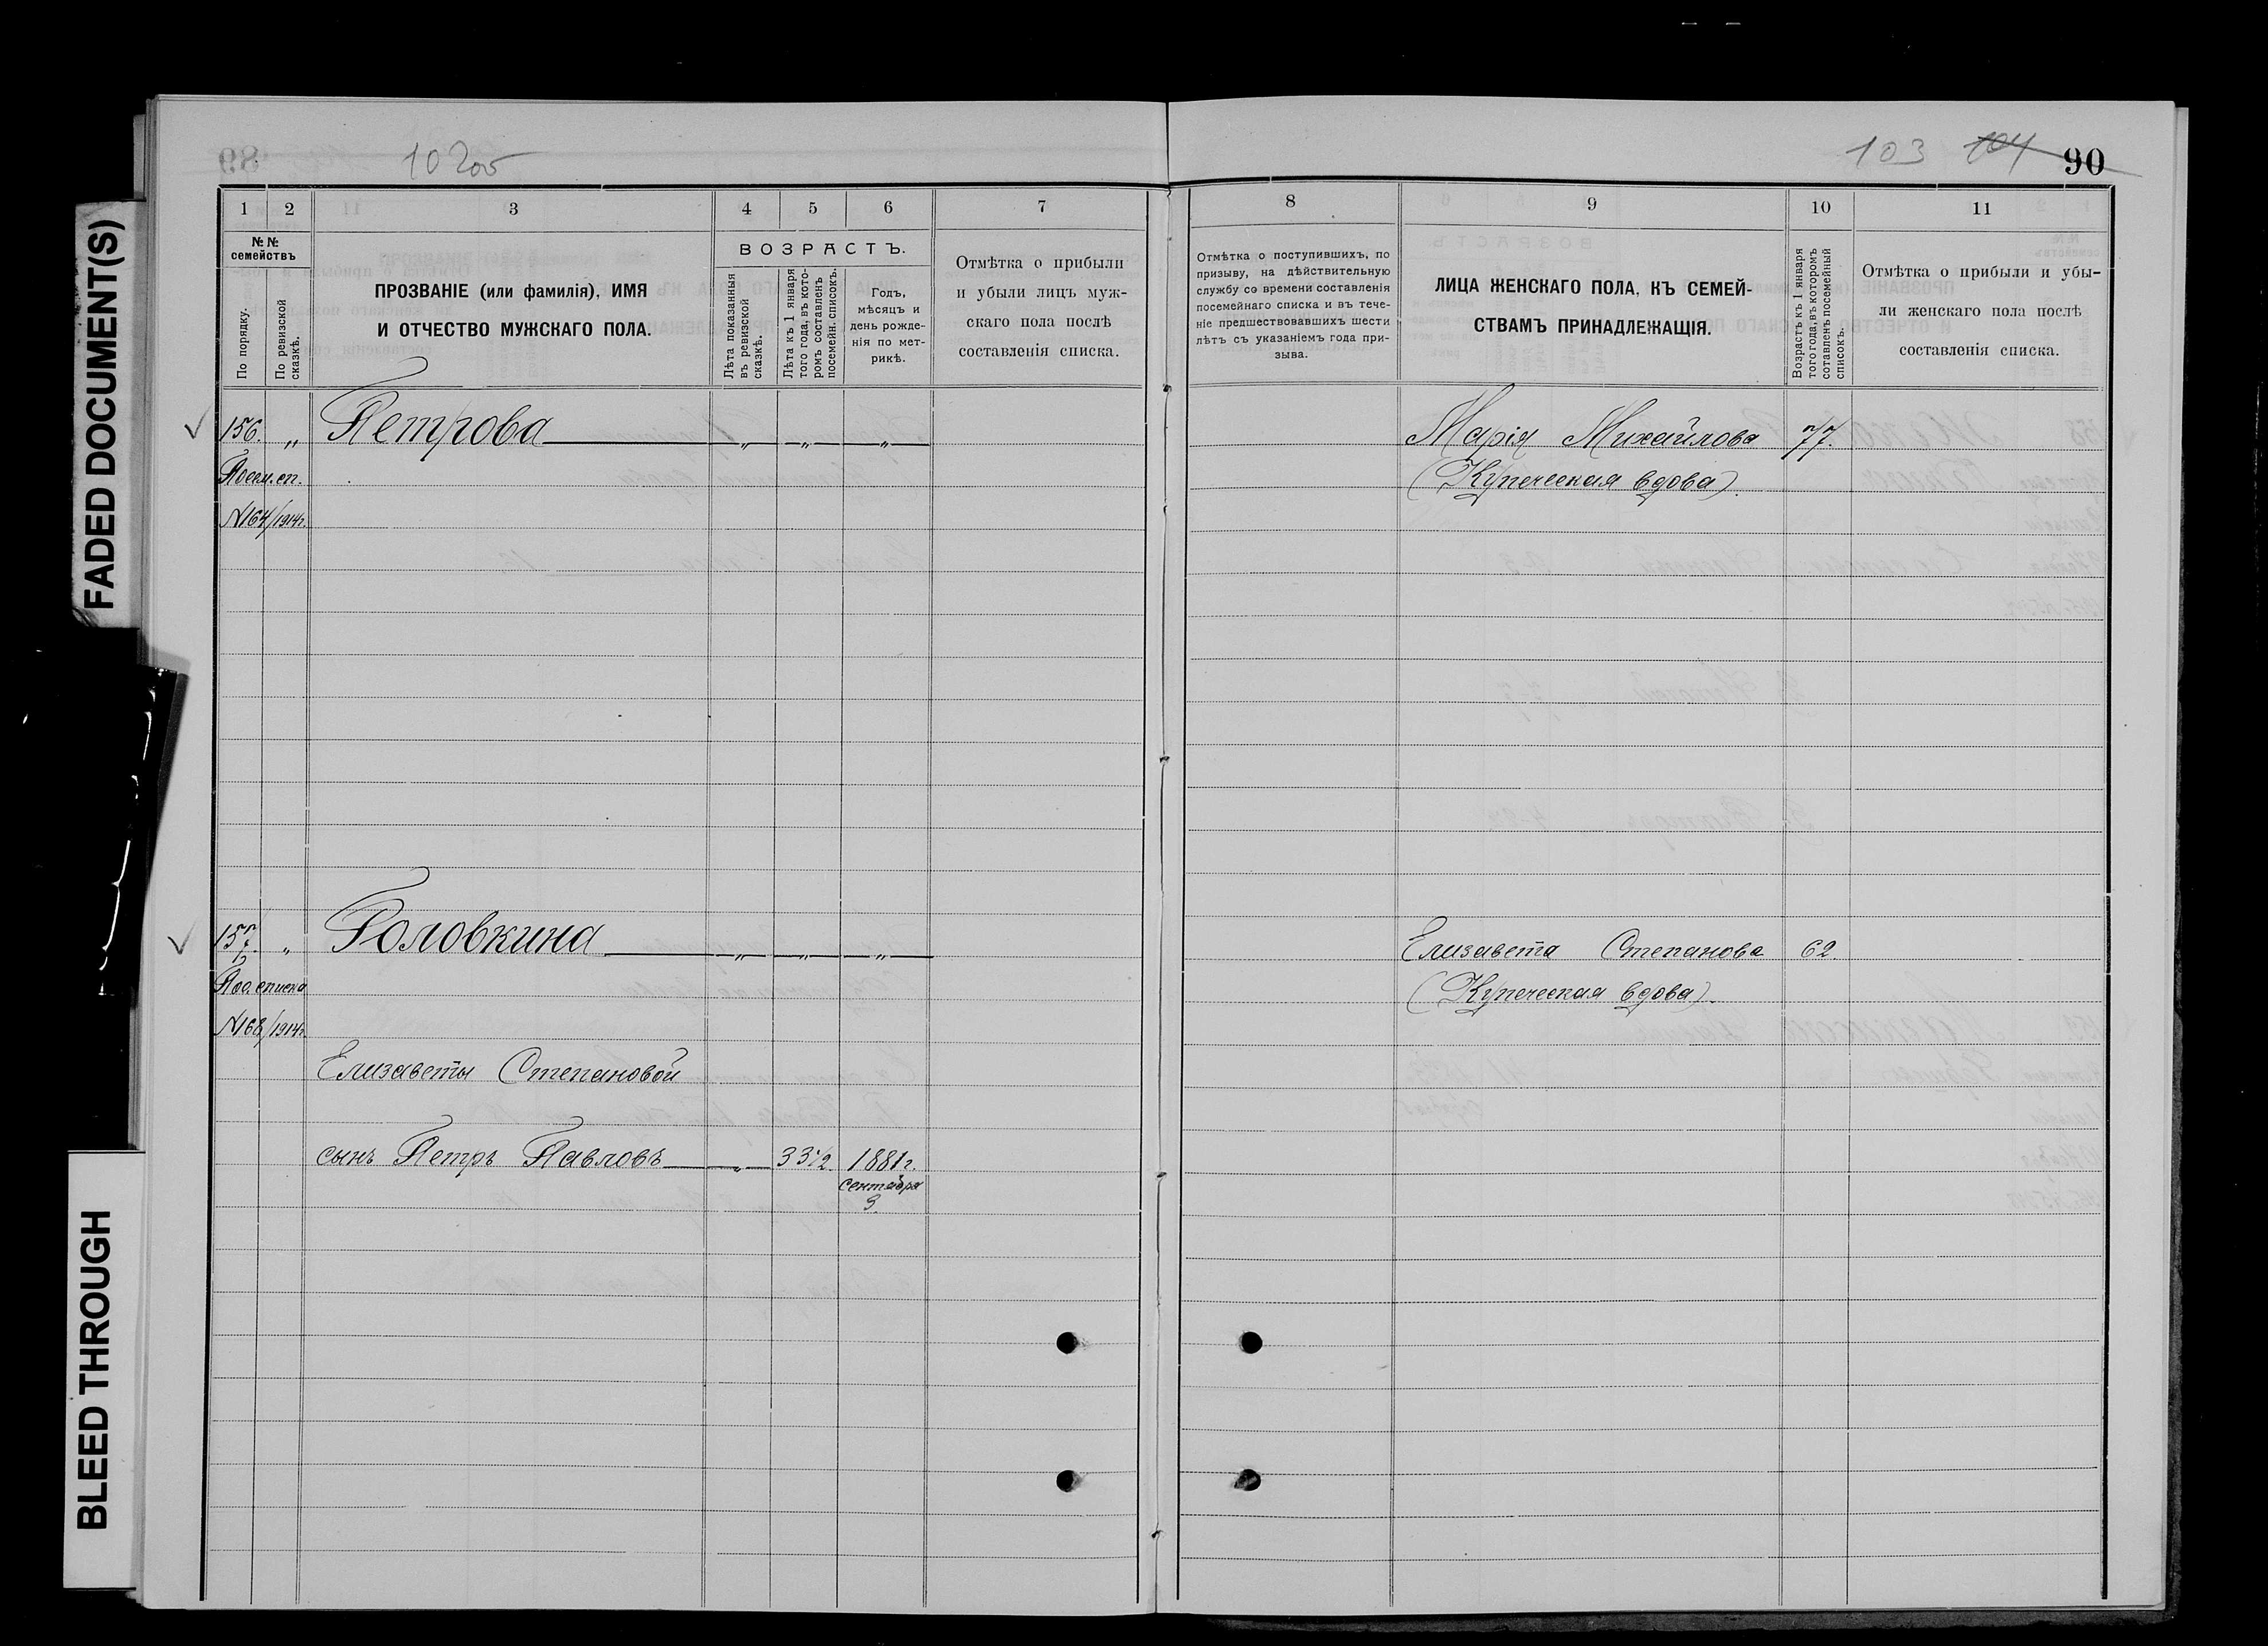 FADED DOCUMENT(S)
BLEED THROUGH
89
103 104 90
1 2 3 4 5 6 7
№№ семействъ
По порядку.
По ревизской сказкѣ.
ПРОЗВАНІЕ (или фамилія), ИМЯ
И ОТЧЕСТВО МУЖСКАГО ПОЛА.
ВОЗРАСТЪ.
Лѣта показанныя въ ревизской сказкѣ.
Лѣта къ 1 января того года, въ которомъ составленъ посемейн. списокъ.
Годъ,
мѣсяцъ и
день рожде-
нія по мет-
рикѣ.
Отмѣтка о прибыли
и убыли лицъ муж-
скаго пола послѣ
составленія списка.
156. „ Петрова „ „ „
Посем. сп.
№164/1914г.
157. „ Головкина „ „ „
Пос. списка
№168/1914г.
Елизаветы Степановой
сынъ Петръ Павловъ „ 33 1/2. 1881г.
сентября
9.
8 9 10 11
Отмѣтка о поступившихъ, по
призыву, на дѣйствительную
службу со времени составленія
посемейнаго списка и въ тече-
ніе предшествовавшихъ шести
лѣтъ съ указаніемъ года при-
зыва.
ЛИЦА ЖЕНСКАГО ПОЛА, КЪ СЕМЕЙ-
СТВАМЪ ПРИНАДЛЕЖАЩІЯ.
Возрастъ къ 1 января того года, въ которомъ составленъ посемейный списокъ.
Отмѣтка о прибыли и убы-
ли женскаго пола послѣ
составленія списка.
Марія Михайлова 77.
(Купеческая вдова).
Елизавета Степанова 62.
(Купеческая вдова).